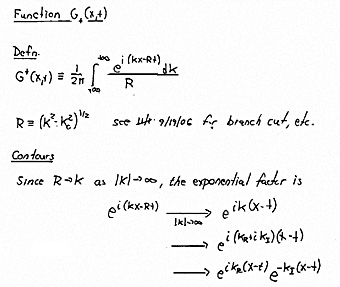 Function G₊(x,t)
Defn.
G⁺(x,t) ≡ 1/2π ∫_{-∞}^{+∞} e^{i(kx-Rt)}/R dk
R ≡ (k²-k_c²)^{1/2} see 9/19/06 for branch cut, etc.
Contours
Since R→k as |k|→∞, the exponential factor is
e^{i(kx-Rt)} →_{|k|→∞} e^{ik(x-t)}
→ e^{i(k_R+ik_I)(x-t)}
→ e^{ik_R(x-t)} e^{-k_I(x-t)}